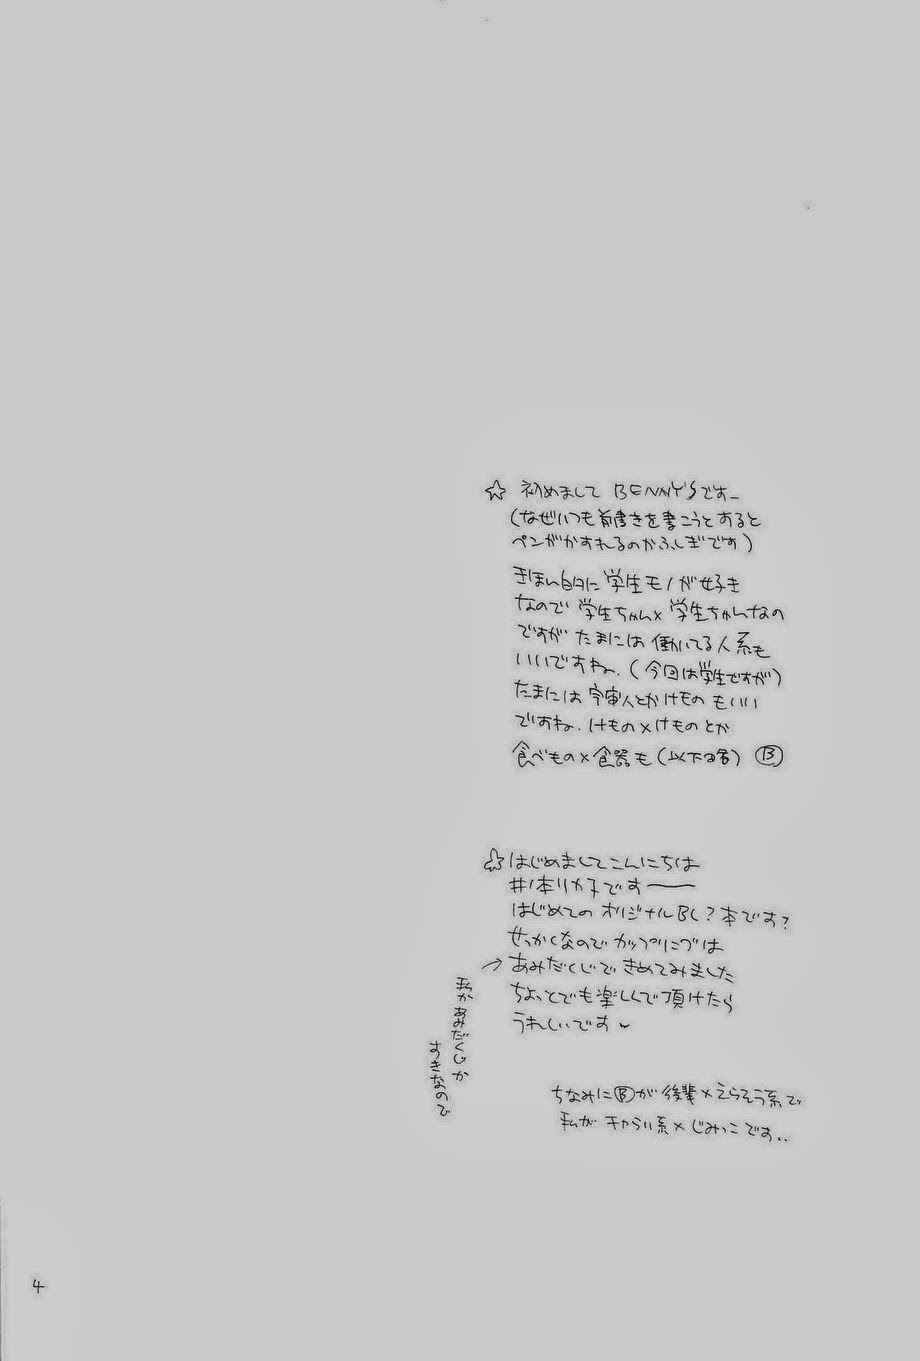 ☆ 初めまして BENNY'Sです_
(なぜいつも前書きを書こうとすると
ペンがかすれるのかふしぎです)
きほん的に学生モノが好き
なので 学生ちゃん×学生ちゃんなの
ですが たまには 働いてる人系も
いいですね.(今回は学生ですが)
たまには 宇宙人とかけもの もいい
ですね.けもの×けものとか
食べもの×食器も(以下略) Ⓑ
☆はじめましてこんにちは
井本リカ子です──
はじめての オリジナルBL?本です?
せっかくなので カップリングは
→あみだくじで きめてみました
ちょっとでも楽しんで頂けたら
うれしいです
私があみだくじが
すきなので
ちなみにⒷが 後輩×えらそう系で
私が チャらい系×じみっこです..
4